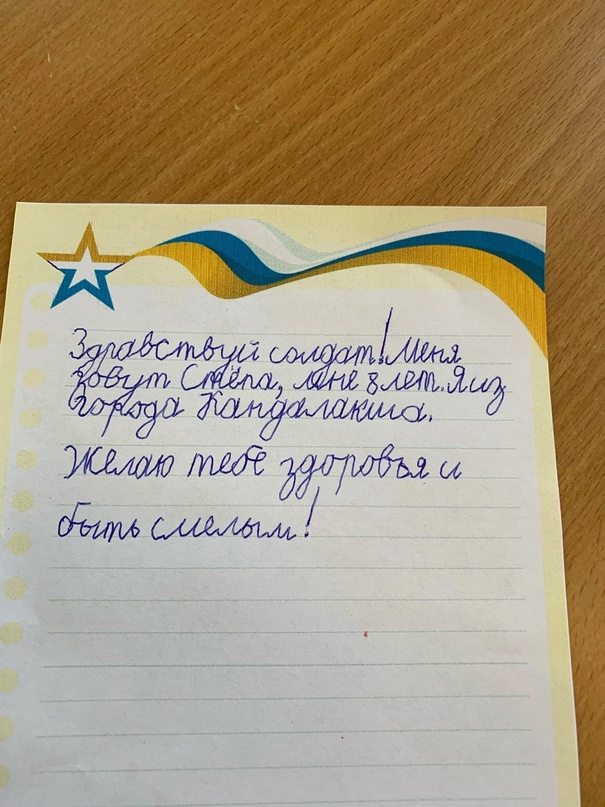 Здравствуй солдат! Меня
зовут Стёпа, мне 8 лет. Я из
города Кандалакша.
Желаю тебе здоровья и
быть смелым!